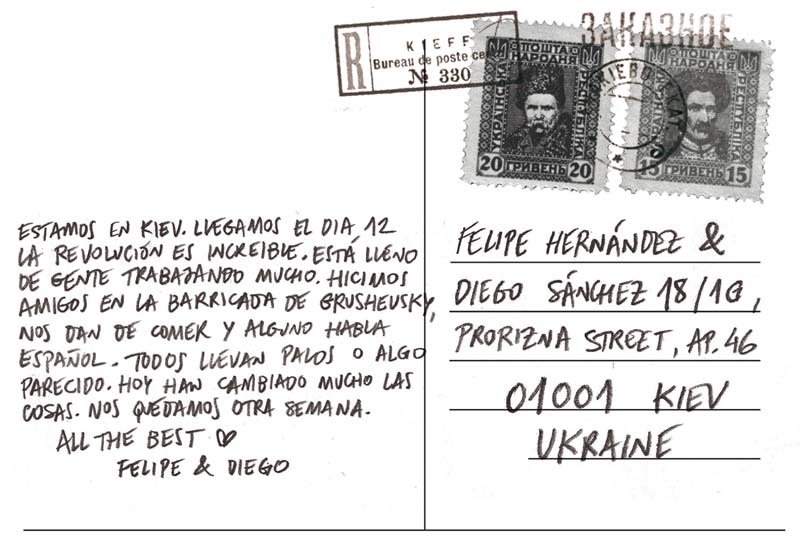 R
KIEFF
Bureau de poste ce
№ 330
ЗАКАЗНОЕ
ПОШТА
НАРОДНЯ
УКРАЇНСЬК
РЕСПУБЛІКА
20 ГРИВЕНЬ 20
ПОШТА
НАРОДНЯ
РЕСПУБЛІКА
15 ГРИВЕНЬ 15
ESTAMOS EN KIEV. LLEGAMOS EL DIA 12
LA REVOLUCIÓN ES INCREIBLE. ESTÁ LLENO
DE GENTE TRABAJANDO MUCHO. HICIMOS
AMIGOS EN LA BARRICADA DE GRUSHEVSKY,
NOS DAN DE COMER Y ALGUNO HABLA
ESPAÑOL. TODOS LLEVAN PALOS O ALGO
PARECIDO. HOY HAN CAMBIADO MUCHO LAS
COSAS. NOS QUEDAMOS OTRA SEMANA.
ALL THE BEST ♡
FELIPE & DIEGO
FELIPE HERNÁNDEZ &
DIEGO SÁNCHEZ 18/1G,
PRORIZNA STREET, AP. 46
01001 KIEV
UKRAINE